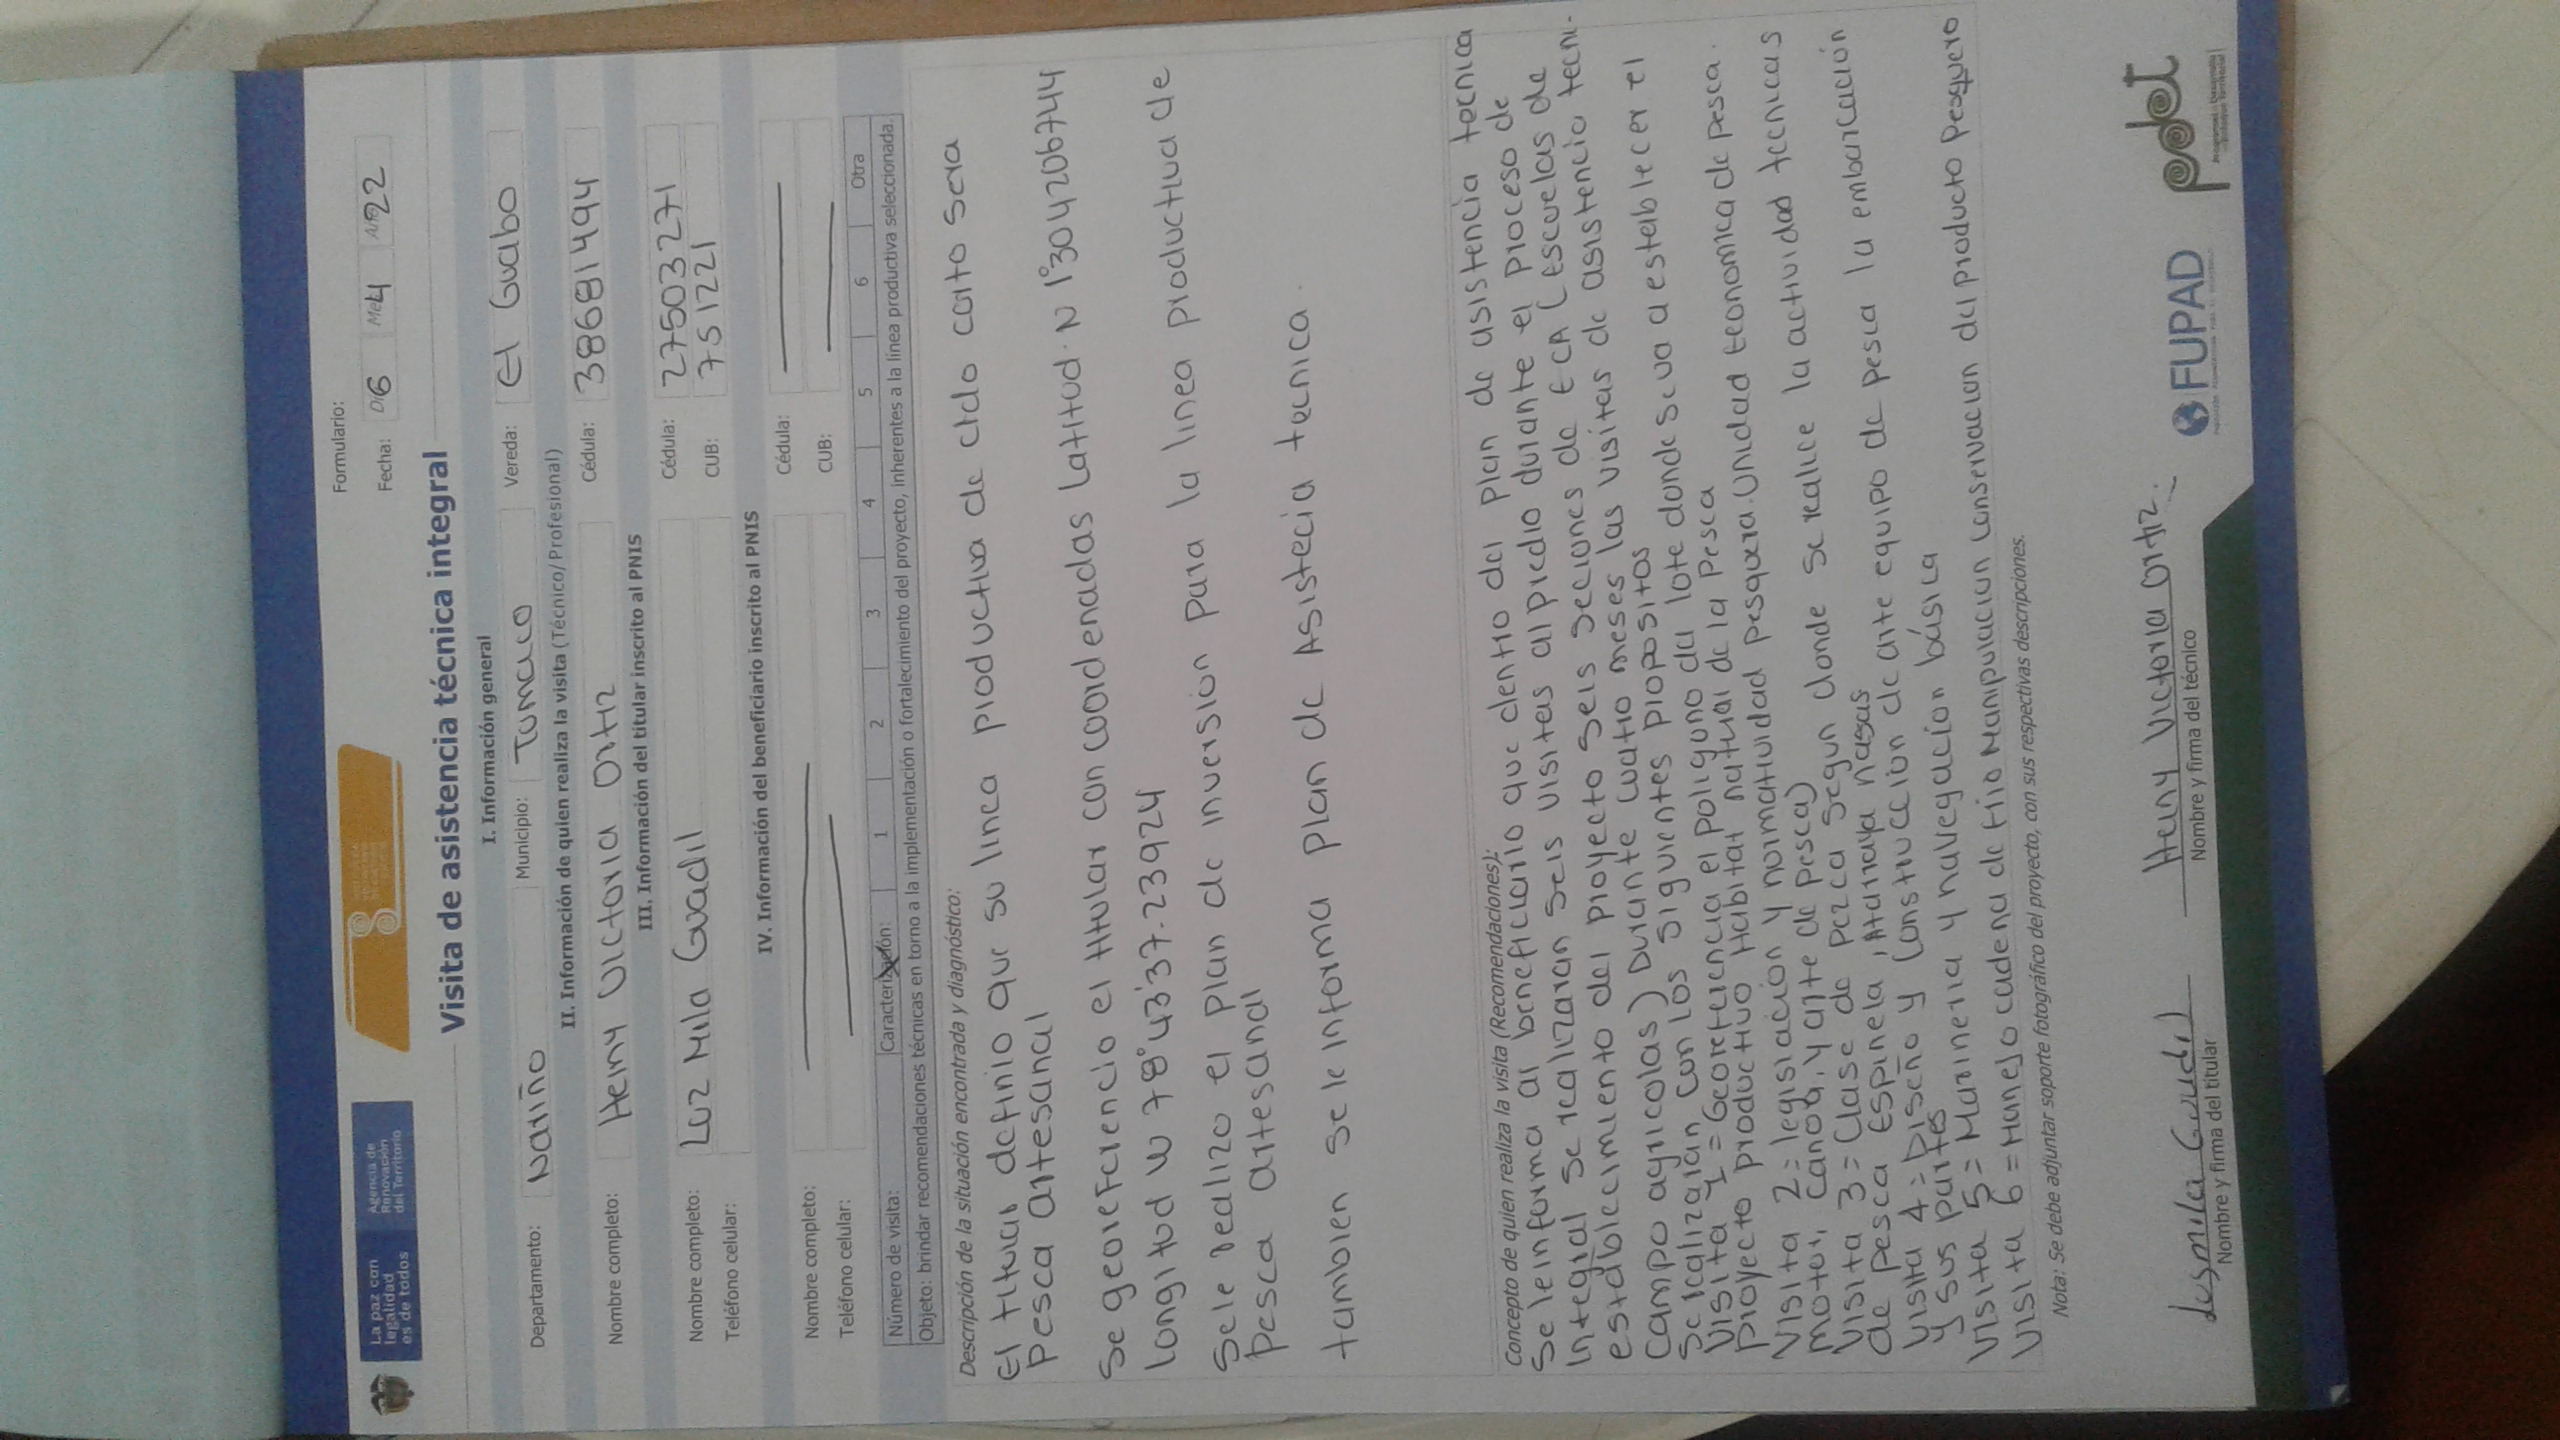 La paz con
legalidad
es de todos
Agencia de
Renovación
del Territorio
Formulario:
Fecha: Día 6 Mes 4 Año 22
Visita de asistencia técnica integral
I. Información general
Departamento: Nariño Municipio: Tumaco Vereda: El Guabo
II. Información de quien realiza la visita (Técnico/Profesional)
Nombre completo: Heiny Victoria Ortiz Cédula: 38681494
III. Información del titular inscrito al PNIS
Nombre completo: Luz Mila Guadil Cédula: 27503271
Teléfono celular: CUB: 751221
IV. Información del beneficiario inscrito al PNIS
Nombre completo: Cédula:
Teléfono celular: CUB:
Número de visita: Caracterización: 1 2 3 4 5 6 Otra
Objeto: brindar recomendaciones técnicas en torno a la implementación o fortalecimiento del proyecto, inherentes a la línea productiva seleccionada.
Descripción de la situación encontrada y diagnóstico:
El titular definio que su linea productiva de ciclo corto sera
Pesca artesanal
Se georeferencio el titular con coordenadas Latitud. N 1°30'4206744
Longitud W 78°43'37.23924
Se le realizo el plan de inversion para la linea productiva de
Pesca artesanal
tambien se le informa plan de Asistecia tecnica.
Concepto de quien realiza la visita (Recomendaciones):
Se le informa al beneficiario que dentro del plan de asistencia tecnica
Integral se realizaran seis visitas al predio durante el proceso de
establecimiento del proyecto seis seciones de ECA (escuelas de
campo agricolas) Durante cuatro meses las visitas de asistencia tecni-
Se realizaran con los siguientes propositos
Visita 1 = Georeferencia el poligono del lote donde se va a establecer el
proyecto productivo Habitat natural de la Pesca
Visita 2 = legislacion y normatividad pesquera. Unidad economica de pesca.
motor, canoa, y arte de pesca)
Visita 3 = Clase de pezca segun donde se realice la actividad tecnicas
de pesca Espinela, Atarraya nasas
Visita 4 = Diseño y Construccion de arte equipo de pesca la embarcación
y sus partes
Visita 5 = Marineria y navegacion básica
Visita 6 = Manejo cadena de frio Manipulacion conservacion del producto pesquero
Nota: Se debe adjuntar soporte fotográfico del proyecto, con sus respectivas descripciones.
Lusmila Guadil
Nombre y firma del titular
Heiny Victoria Ortiz.
Nombre y firma del técnico
FUPAD
pdet